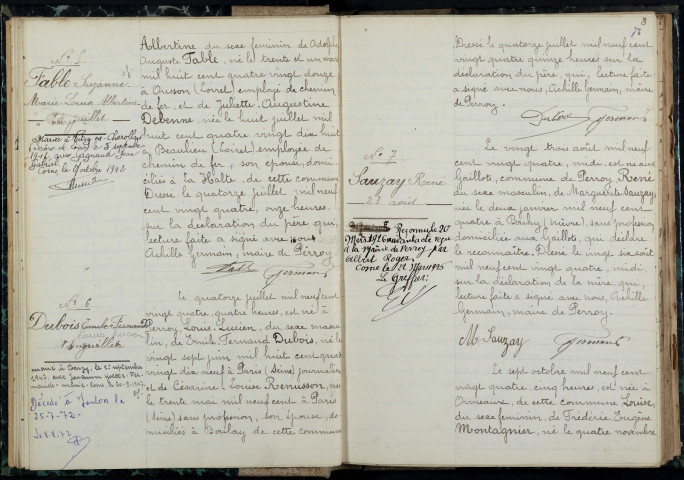 N° 5
Fable Suzanne
Marie-Louise Albertine
juillet
Mariée à Vitry en Charollais
(Saône et Loire) le 5 septembre
1942, avec Gagnaud Jean
Gabriel.
Cosne, le 7 octobre 1942
Albertine du sexe féminin de Adolphe
Auguste Fable, né le trente et un mars
mil huit cent quatre vingt douze
à Ousson (Loiret) employé de chemin
de fer, et de Juliette Augustine
Debenne, née le huit juillet mil
huit cent quatre vingt dix huit
à Beaulieu (Loiret) employée de
chemin de fer, son épouse, domi-
ciliés à la Halte, de cette commune
Dressé le quatorze juillet mil neuf
cent vingt quatre, onze heures
sur la déclaration du père qui,
lecture faite a signé avec nous
Achille Germain, maire de Perroy
Fable Germain
N° 6
Dubois Emile Fernand
Louis Lucien
14 juillet
marié à Donzy, le 1er septembre
1947, avec
Décédé à Toulon le
25-7-72-
Le 8.8.72
Le quatorze juillet mil neuf cent
vingt quatre, quatre heures, est né à
Perroy, Louis, Lucien, du sexe mascu
lin, de Emile Fernand Dubois, né le
vingt sept juin mil huit cent quatre
vingt dix neuf à Paris (Seine) journalier
et de Césarine Louise Remusson, née
le trente mai mil neuf cent à Paris
(Seine) sans profession, son épouse, do
miciliés à Boulay de cette commune
3
Dressé le quatorze juillet mil neuf cent
vingt quatre quinze heures sur la
déclaration du père, qui, lecture faite
a signé avec nous, Achille Germain, maire
de Perroy.
Dubois Germain
N° 7
Sauzay René
23 août
Reconnu le 20
Mars 1926 suivant acte reçu
à la Mairie de Perroy par
Albert Roger.
Cosne le 21 Mars 1926
Le Greffier:
Le vingt trois août mil neuf
cent vingt quatre, midi, est né aux
Gaillots, commune de Perroy René
du sexe masculin, de Marguerite Sauzay,
née le deux janvier mil neuf cent
quatre à Brihy (Nièvre), sans profession,
domiciliée aux Gaillots, qui déclare
le reconnaître. Dressé le vingt six août
mil neuf cent vingt quatre, midi,
sur la déclaration de la mère, qui,
lecture faite a signé avec nous, Achille
Germain, maire de Perroy.
M. Sauzay Germain
Le sept octobre mil neuf cent
vingt quatre cinq heures, est née à
Ormeaux, de cette commune Louise
du sexe féminin, de Frédéric Eugène
Montagnier, né le quatre novembre